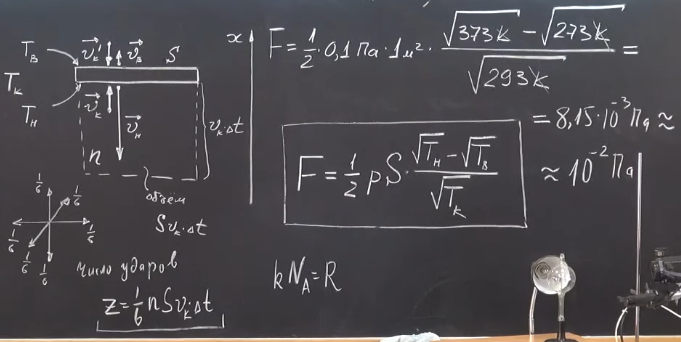 T_в v⃗'_к v⃗_в S
T_к
T_н v⃗_к v⃗_н v_к·Δt
n
объём
S v_к·Δt
1/6 1/6 1/6 1/6 1/6 1/6
число ударов
z = 1/6 n S v_к·Δt
x
F = 1/2 · 0,1 Па · 1 м² · (√373k − √273k)/√293k =
= 8,15·10⁻³ Па ≈
≈ 10⁻² Па
F = 1/2 p S · (√T_н − √T_в)/√T_к
k N_A = R